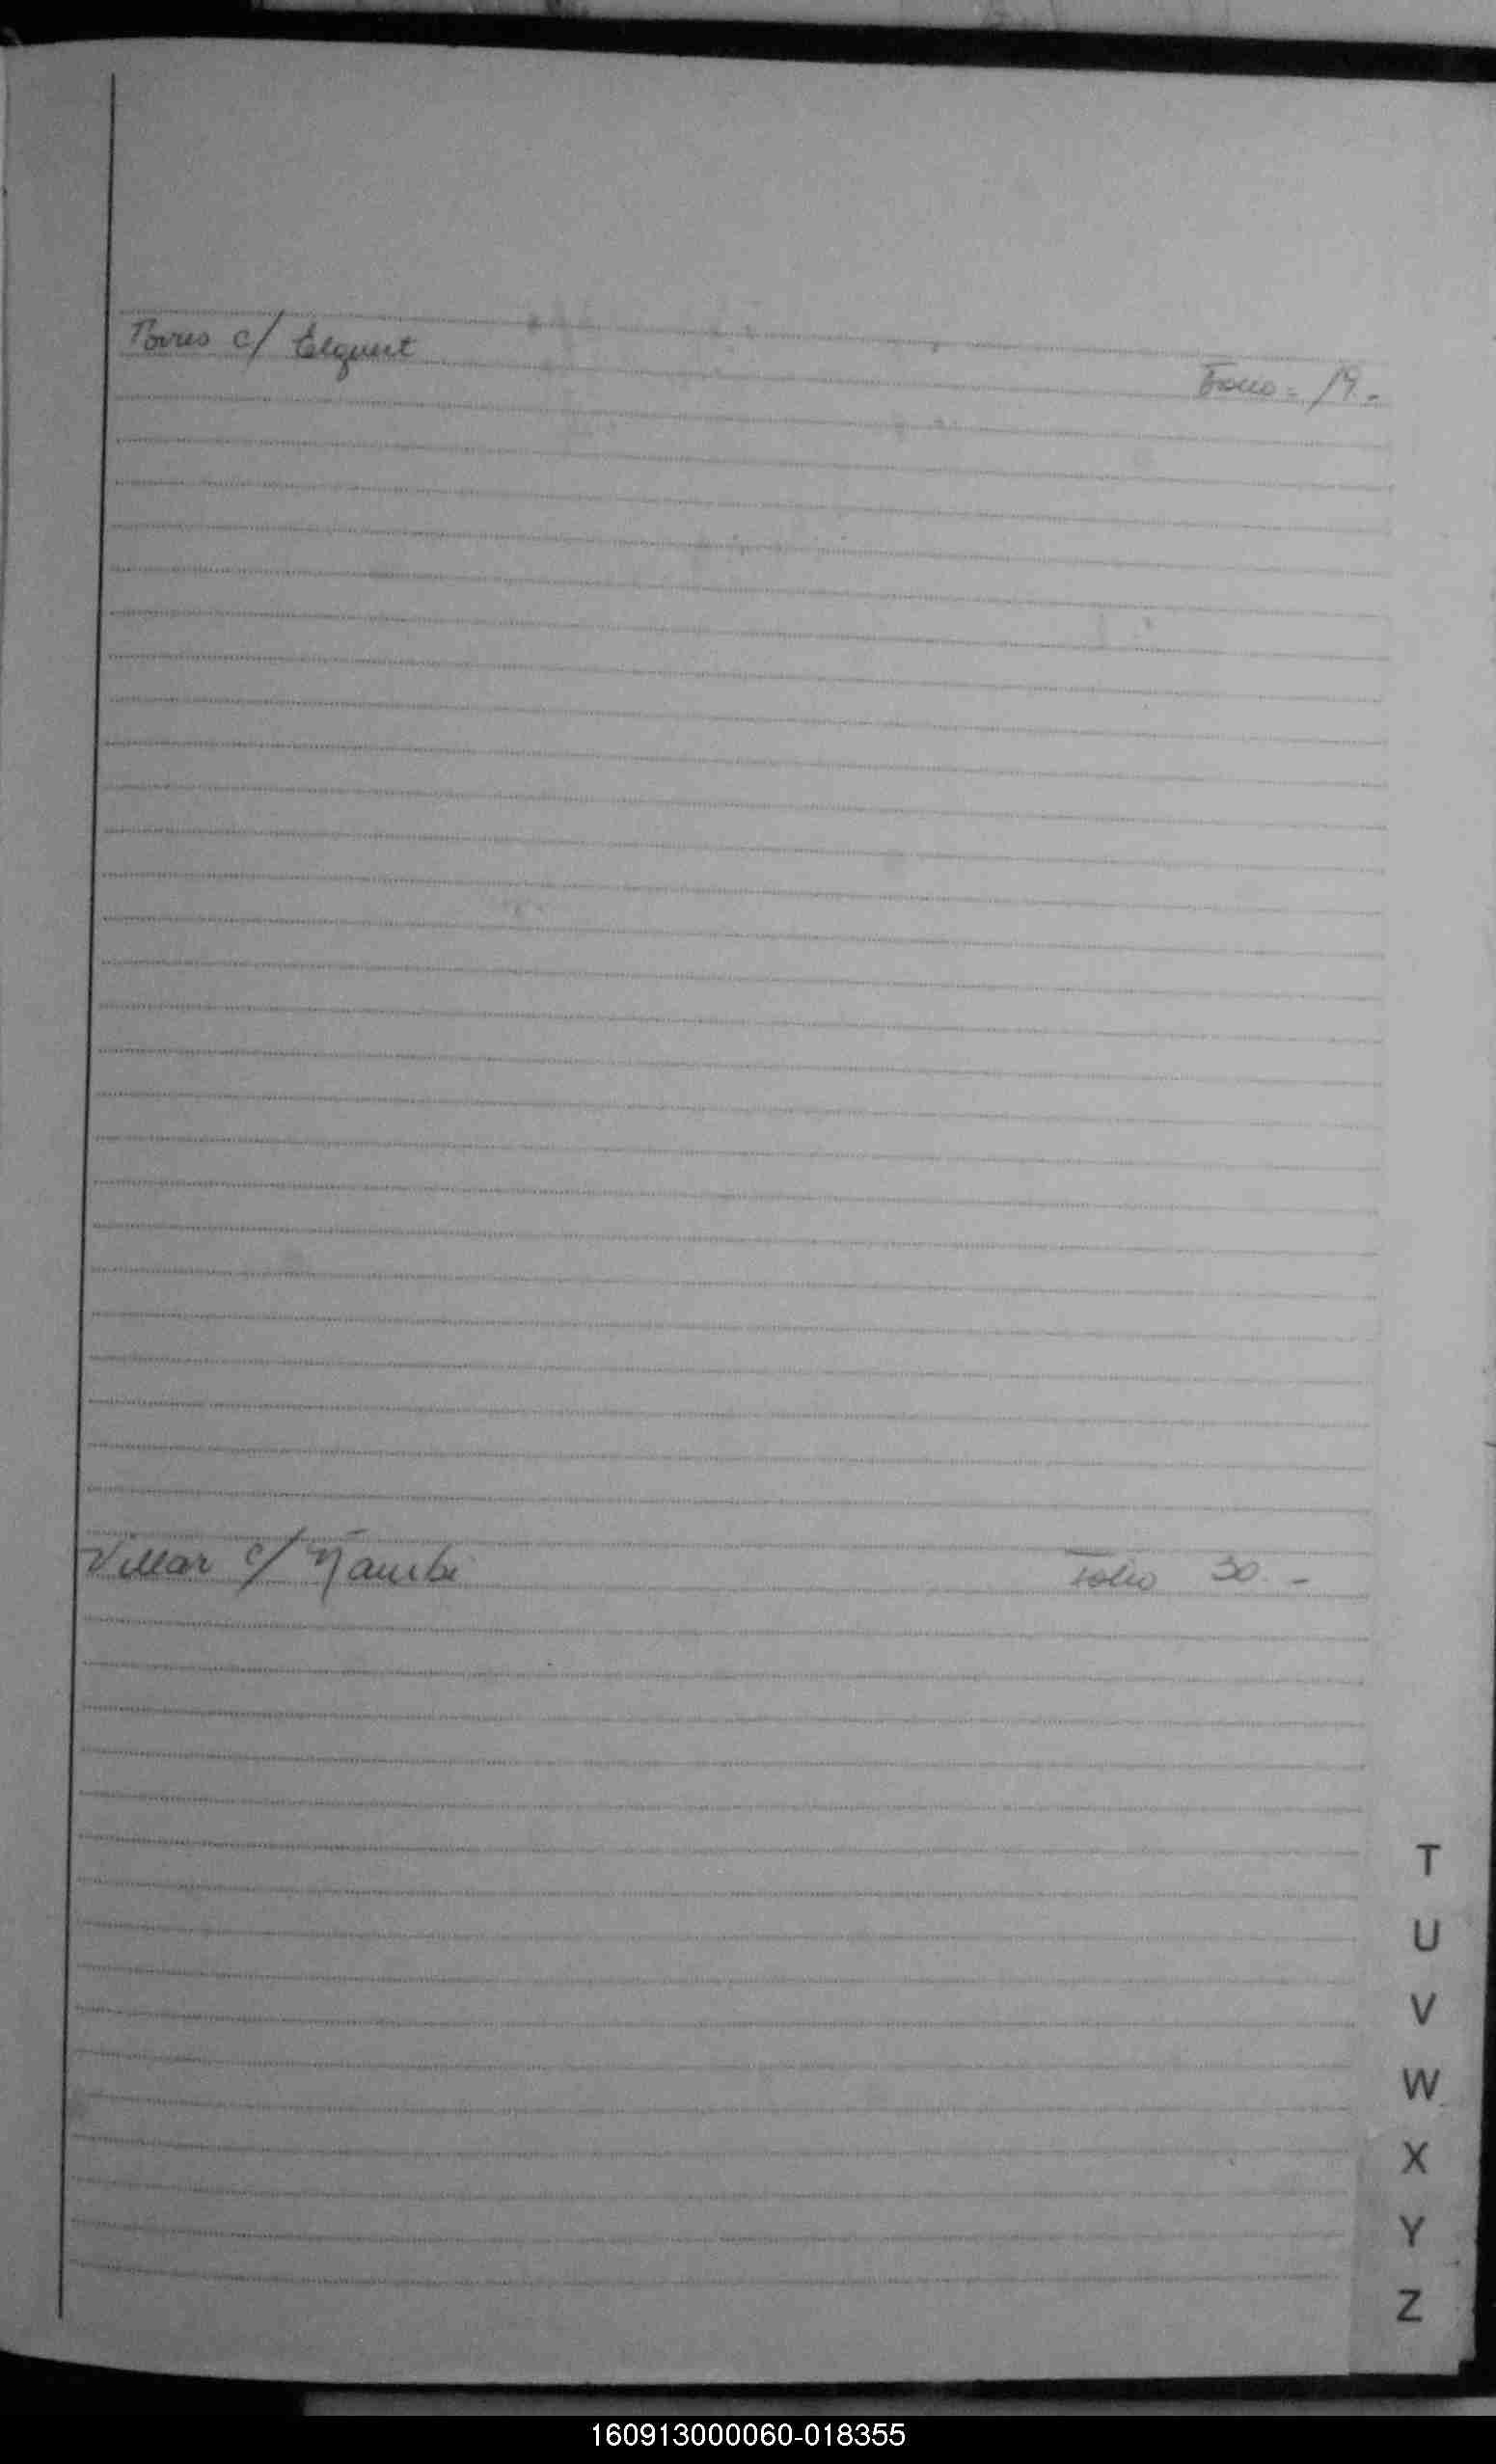 Torres c/ Elguert
Folio = 19.-
Villar c/ Ñambi
Folio 30.-
T
U
V
W
X
Y
Z
160913000060-018355